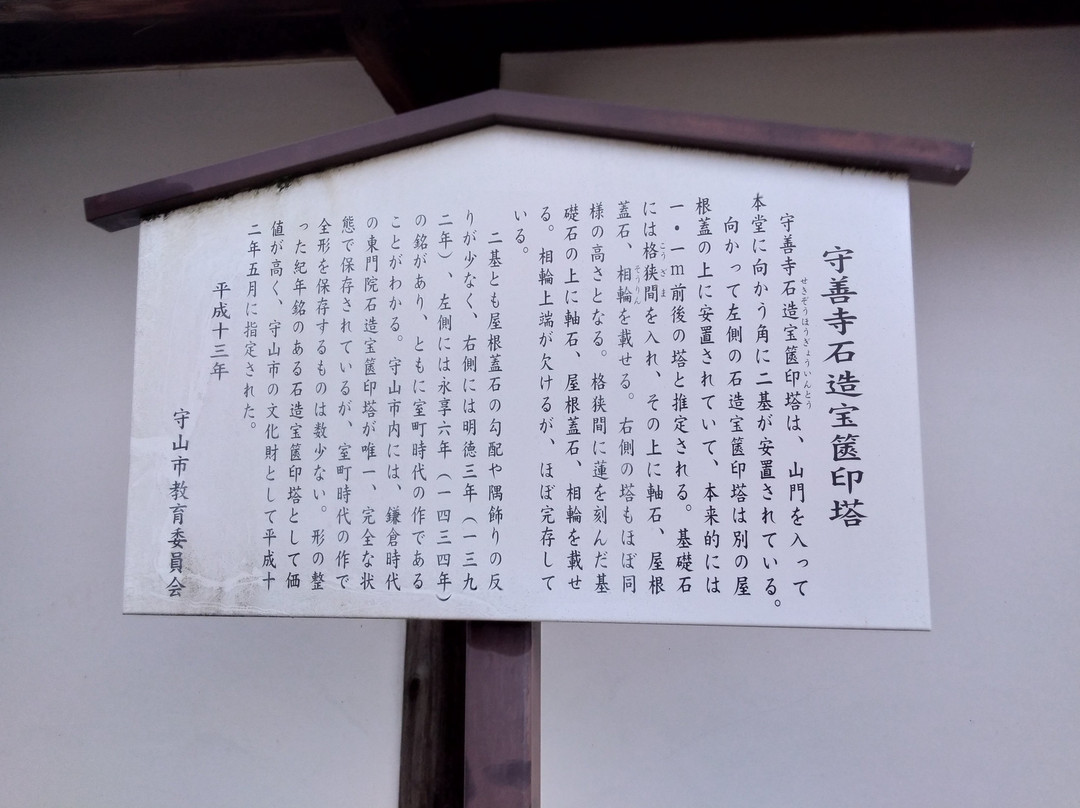 守善寺石造宝篋印塔
守善寺石造宝篋印塔は、山門を入って
せきぞうほうぎょういんとう
本堂に向かう角に二基が安置されている。
向かって左側の石造宝篋印塔は別の屋
根蓋の上に安置されていて、本来的には
一・一m前後の塔と推定される。基礎石
には格狭間を入れ、その上に軸石、屋根
こうざま
蓋石、相輪を載せる。右側の塔もほぼ同
そうりん
様の高さとなる。格狭間に蓮を刻んだ基
礎石の上に軸石、屋根蓋石、相輪を載せ
る。相輪上端が欠けるが、ほぼ完存して
いる。
二基とも屋根蓋石の勾配や隅飾りの反
りが少なく、右側には明徳三年（一三九
二年）、左側には永享六年（一四三四年）
の銘があり、ともに室町時代の作である
ことがわかる。守山市内には、鎌倉時代
の東門院石造宝篋印塔が唯一、完全な状
態で保存されているが、室町時代の作で
全形を保存するものは数少ない。形の整
った紀年銘のある石造宝篋印塔として価
値が高く、守山市の文化財として平成十
二年五月に指定された。
平成十三年
守山市教育委員会